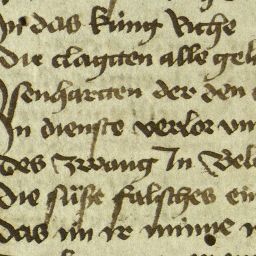 das kung Riche
die clagtten alle gel
senhartten der den
In dienste verlor vn
des zwang In Bel
die süsse falsches ein
das im ir minne